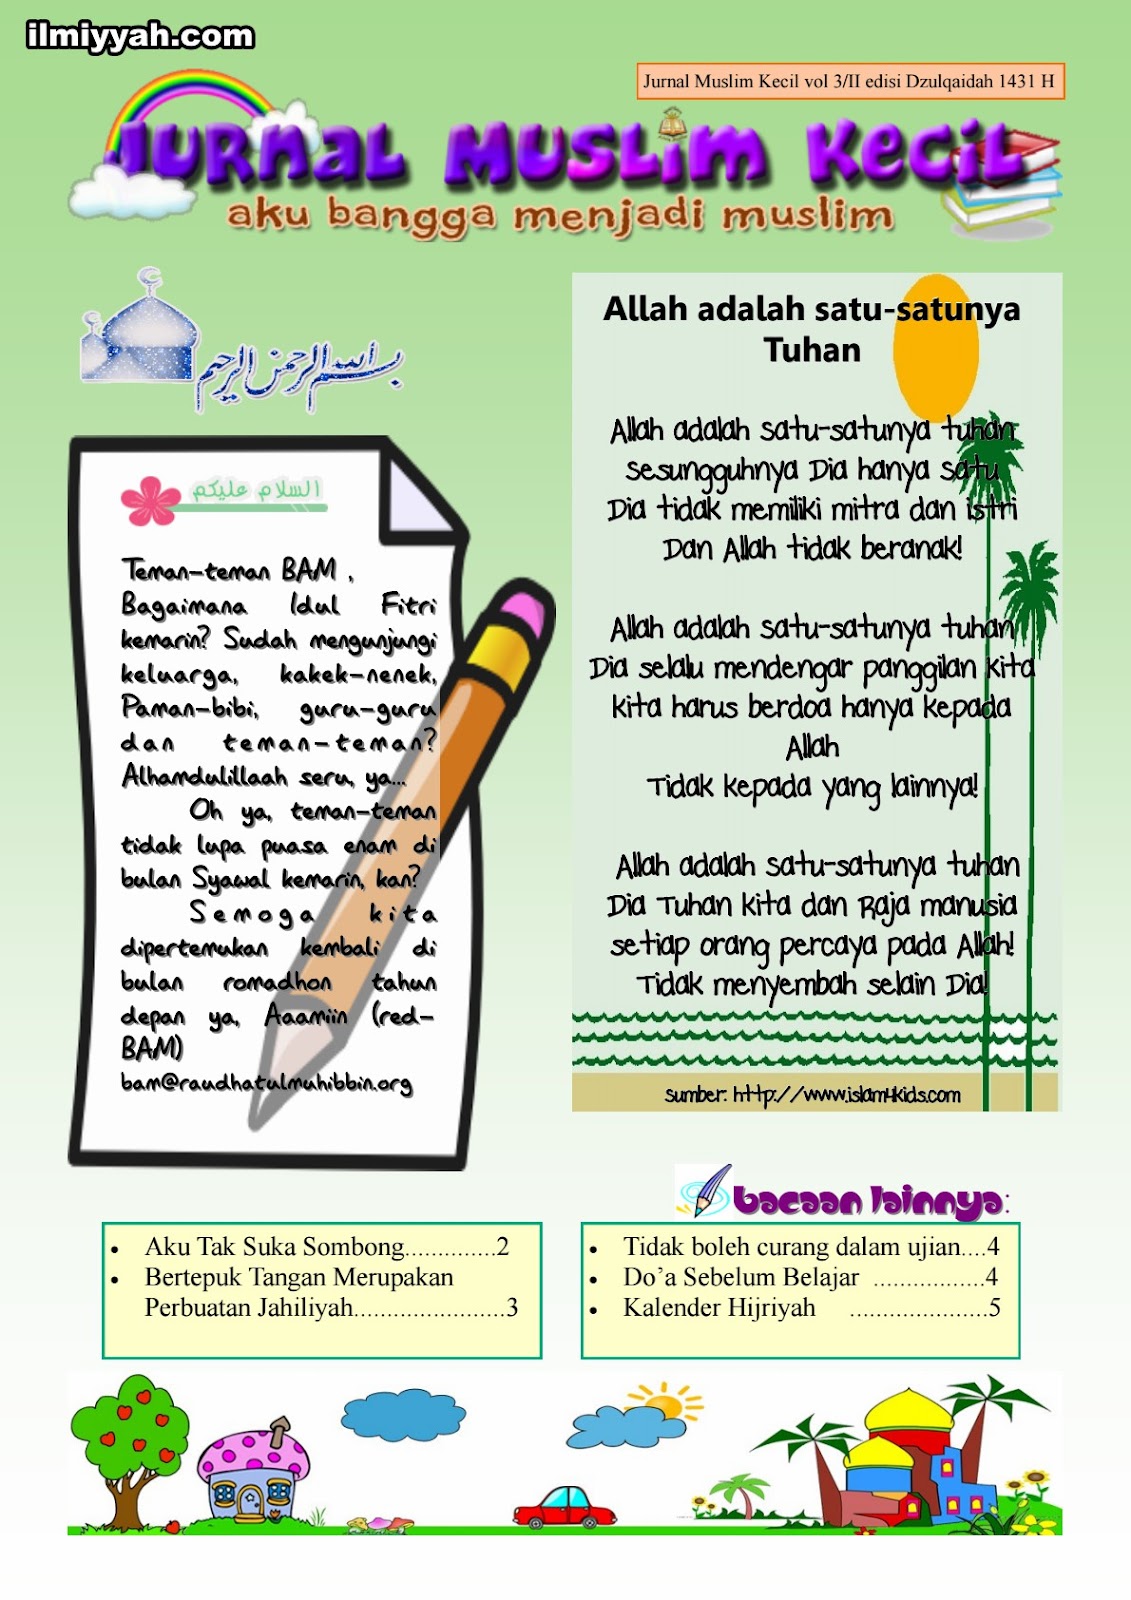 ilmiyyah.com
Jurnal Muslim Kecil vol 3/II edisi Dzulqaidah 1431 H
JURNAL MUSLIM KECIL
aku bangga menjadi muslim
بسم الله الرحمن الرحيم
السلام عليكم
Teman-teman BAM ,
Bagaimana Idul Fitri
kemarin? Sudah mengunjungi
keluarga, kakek-nenek,
Paman-bibi, guru-guru
dan teman-teman?
Alhamdulillaah seru, ya...
Oh ya, teman-teman
tidak lupa puasa enam di
bulan Syawal kemarin, kan?
Semoga kita
dipertemukan kembali di
bulan romadhon tahun
depan ya, Aaamiin (red-
BAM)
bam@raudhatulmuhibbin.org
Allah adalah satu-satunya
Tuhan
Allah adalah satu-satunya tuhan
sesungguhnya Dia hanya satu
Dia tidak memiliki mitra dan istri
Dan Allah tidak beranak!
Allah adalah satu-satunya tuhan
Dia selalu mendengar panggilan kita
kita harus berdoa hanya kepada
Allah
Tidak kepada yang lainnya!
Allah adalah satu-satunya tuhan
Dia Tuhan kita dan Raja manusia
setiap orang percaya pada Allah!
Tidak menyembah selain Dia!
sumber: http://www.islam4kids.com
bacaan lainnya:
• Aku Tak Suka Sombong..............2
• Bertepuk Tangan Merupakan
Perbuatan Jahiliyah.......................3
• Tidak boleh curang dalam ujian....4
• Do’a Sebelum Belajar .................4
• Kalender Hijriyah .....................5